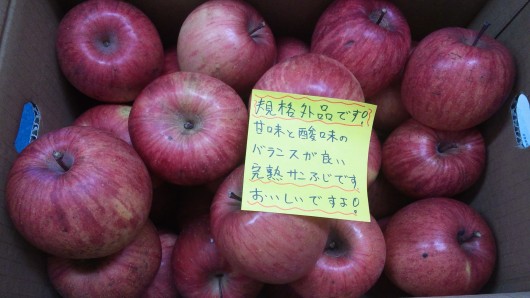 規格外品です!
甘味と酸味の
バランスが良い
完熟サンふじです
おいしいですよ!